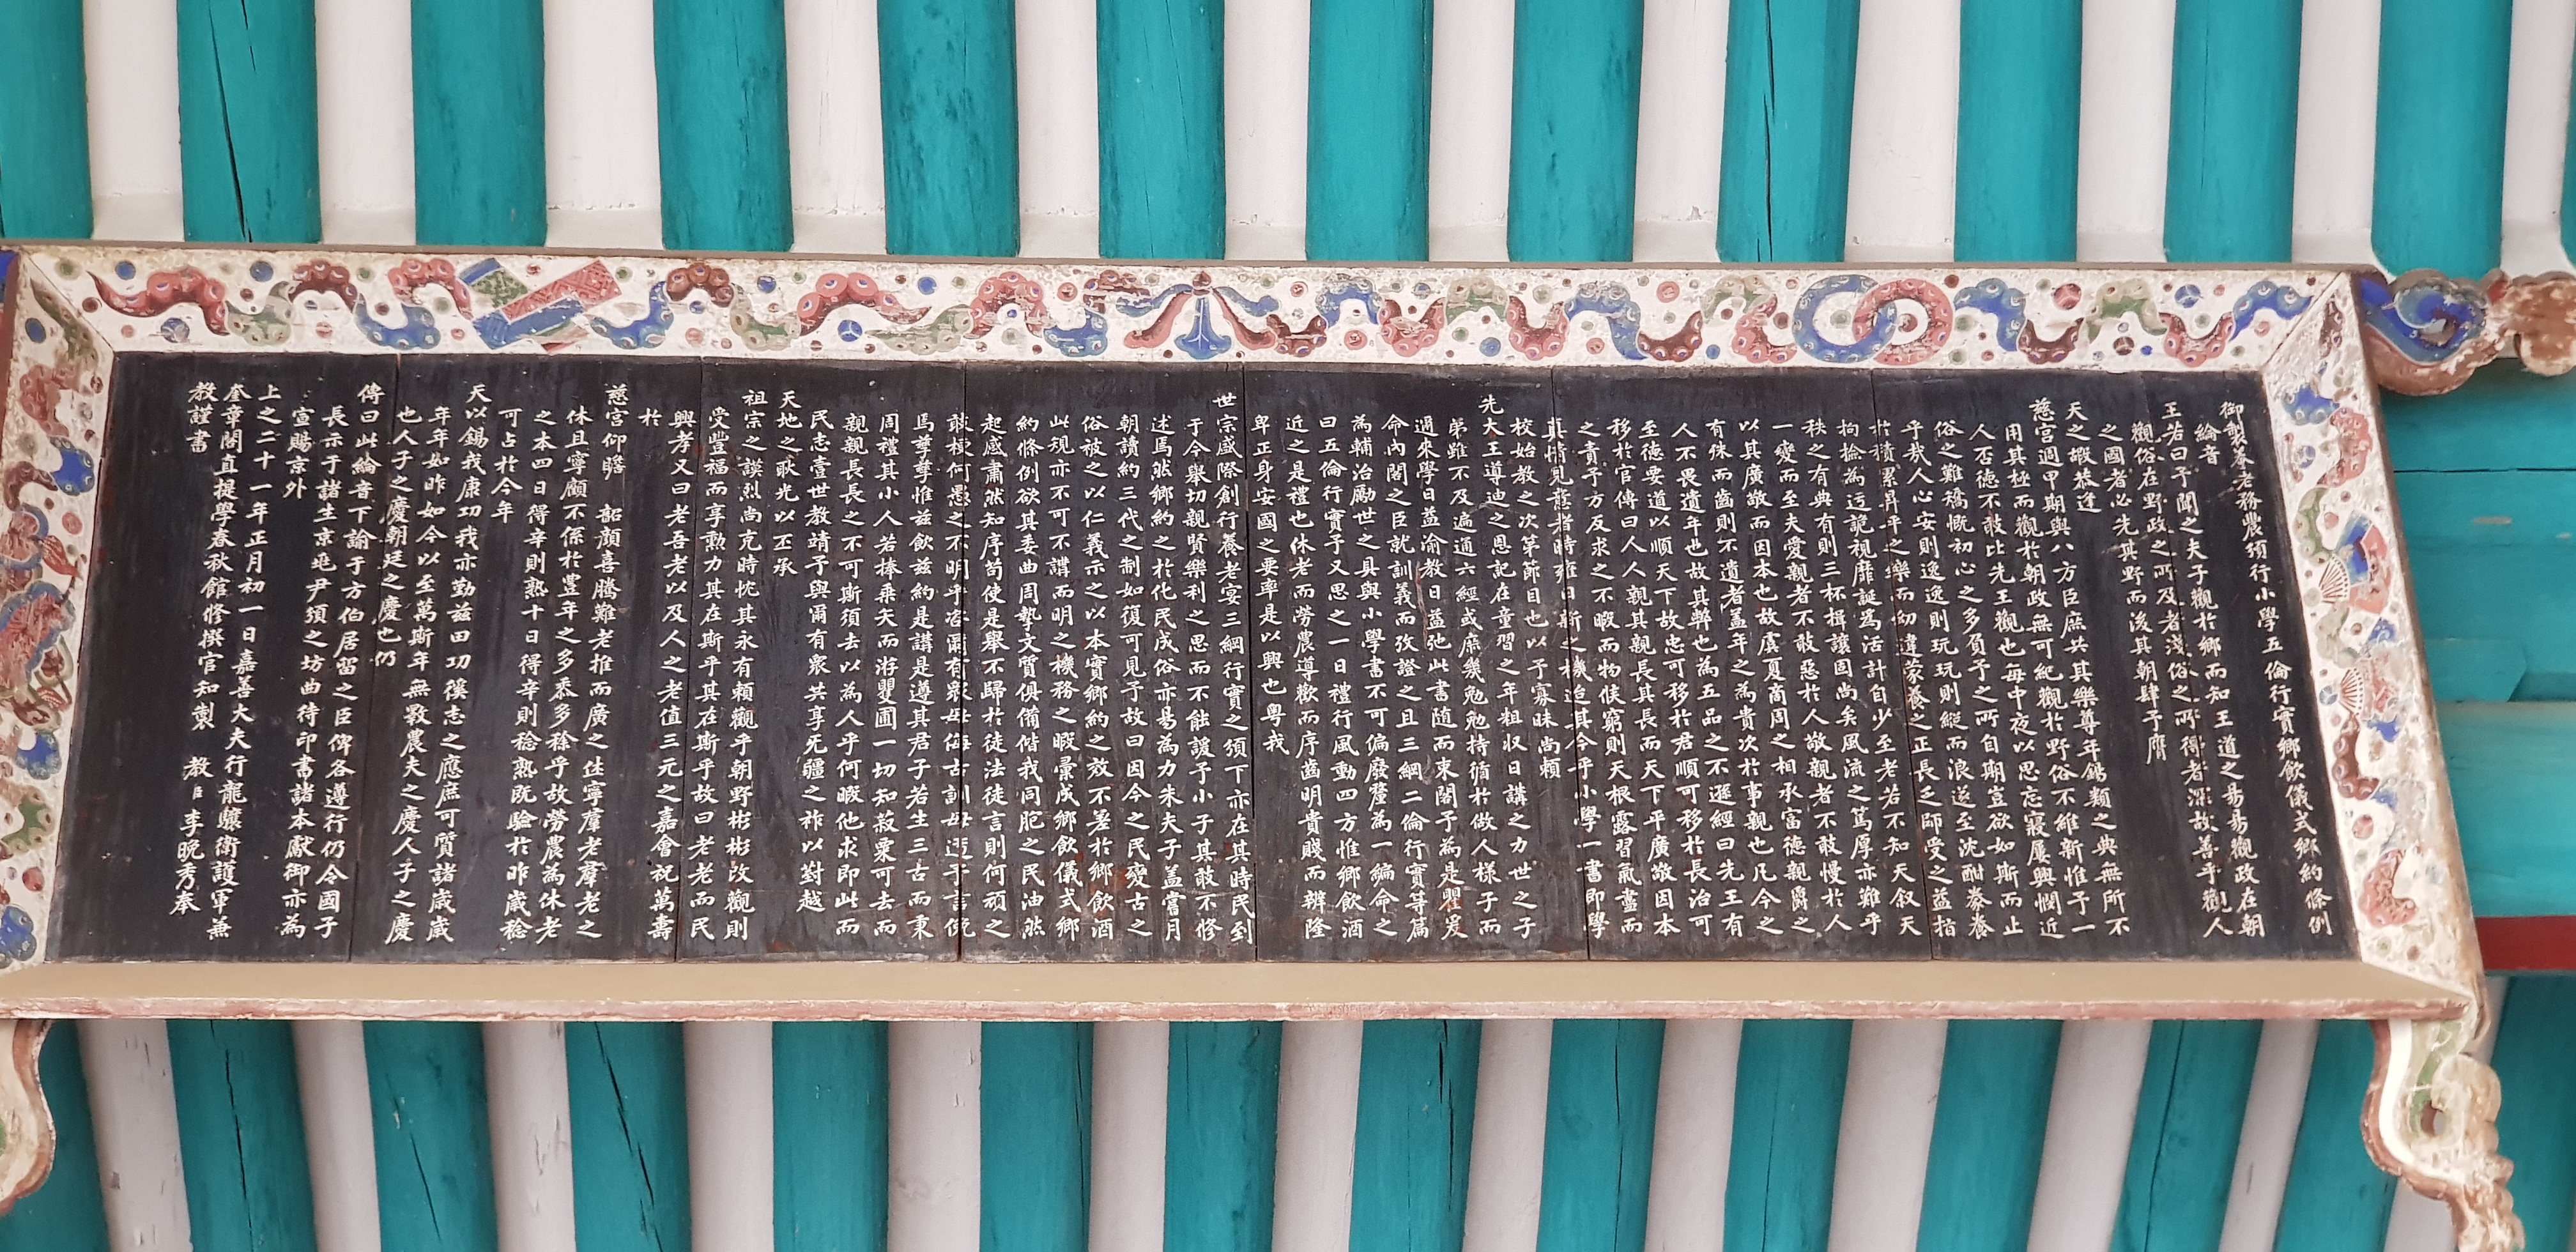 御製養老務農頒行小學五倫行實鄉飮儀式鄉約條例
綸音
王若曰予聞之夫子觀於鄉而知王道之易易觀政在朝
觀俗在野政之所及者淺俗之所得者深故善乎觀人
之國者必先其野而後其朝肆予膺
天之嘏恭逢
慈宮週甲期與八方臣庶共其樂尊年錫類之典無所不
用其極而觀於朝政無可紀觀於野俗不維新惟予一
人否德不敢比先王觀也每中夜以思忘寢屢興憫近
俗之難矯慨初心之多負予之所自期豈欲如斯而止
乎哉人心安則逸逸則玩玩則縱而浪遂至沈酣豢養
於積累昇平之樂而匃違蒙養之正長乏師受之益指
拘撿為迂詭視靡誕為活計自少至老若不知天叙天
秩之有典有則三杯揖讓固尚矣風流之篤厚亦難乎
一變而至夫愛親者不敢惡於人敬親者不敢慢於人
以其廣敬而因本也故虞夏商周之相承富德親爵之
有侏而齒則不遺者盖年之為貴次於事親也凡今之
人不畏遺年也故其弊也為五品之不遜經曰先王有
至德要道以順天下故忠可移於君順可移於長治可
移於官傳曰人人親其親長其長而天下平廣敬因本
之責予方反求之不暇而物候窮則天根露習氣盡而
真情見慈者時雍日新之機迨其今乎小學一書即學
校始敎之次第節目也以予寡昧尚賴
先大王導迪之恩記在童習之年粗収日講之力世之子
弟雖不及遍通六經或庶幾勉勉持循於做人樣子而
邇來學日益渝敎日益弛此書随而束閣予為是瞿爰
命內閣之臣就訓義而攷證之且三綱二倫行實等篇
為輔治勵世之具與小學書不可偏廢釐為一編命之
曰五倫行實予又思之一日禮行風動四方惟鄉飮酒
近之是禮也休老而勞農導歡而序齒明貴賤而辨隆
卑正身安國之要率是以興也粤我
世宗盛際創行養老宴三綱行實之頒下亦在其時民到
于今舉切親賢樂利之思而不能諼予小子其敢不修
述焉然鄉約之於化民成俗亦易為力朱夫子盖嘗月
朝讀約三代之制如復可見予故曰因今之民變古之
俗被之以仁義示之以本實鄉約之效不差於鄉飮酒
此規亦不可不謂而明之機務之暇彙成鄉飮儀式鄉
約條例欲其委曲周摯文質俱備偕我同肥之民油然
起感肅然知序苟使是舉不歸於徒法徒言則何頑之
敢梗何愚之不明乎咨爾有衆毋侮古訓毋違予言俛
焉孳孳惟茲飮茲約是講是遵其君子若生三古而秉
周禮其小人若捧乘矢而游矍圃一切知菽粟可去而
親親長長之不可斯須去以為人乎何暇他求即此而
民志壹世敎靖予與爾有衆共享无疆之祚以對越
天地之耿光以丕承
祖宗之謨烈尚克時忱其永有賴觀乎朝野彬彬改觀則
受豐福而享勲力其在斯乎其在斯乎故曰老老而民
興孝又曰老吾老以及人之老值三元之嘉會祝萬壽
於
慈宮仰瞻　韶顏喜騰難老推而廣之使寧羣老羣老之
休且寧顧不係於豊年之多黍多稌乎故勞農為休老
之本四日得辛則熟十日得辛則稔熟既驗於昨歲稔
可占於今年
天以錫我康功我亦勤茲田功徯志之應庶可質諸歲歲
年年如昨如今以至萬斯年無斁農夫之慶人子之慶
也人子之慶朝廷之慶也仍
傳曰此綸音下諭于方伯居留之臣俾各遵行仍令國子
長示于諸生京兆尹須之坊曲待印書諸本獻御亦為
宣賜京外
上之二十一年正月初一日嘉善大夫行龍驤衛護軍兼
奎章閣直提學春秋館修撰官知製　敎臣李晩秀奉
敎謹書